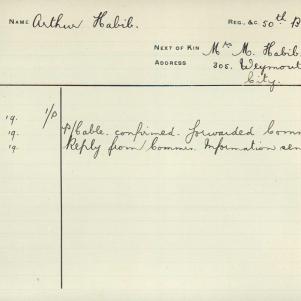 NAME Arthur Habib. REG. &C 50th B
NEXT OF KIN Mrs M. Habib.
ADDRESS 305. Weymout
City.
19. 1/P P/Cable. confirmed. forwarded Comm
19. Reply from Commr. Information sen
19.